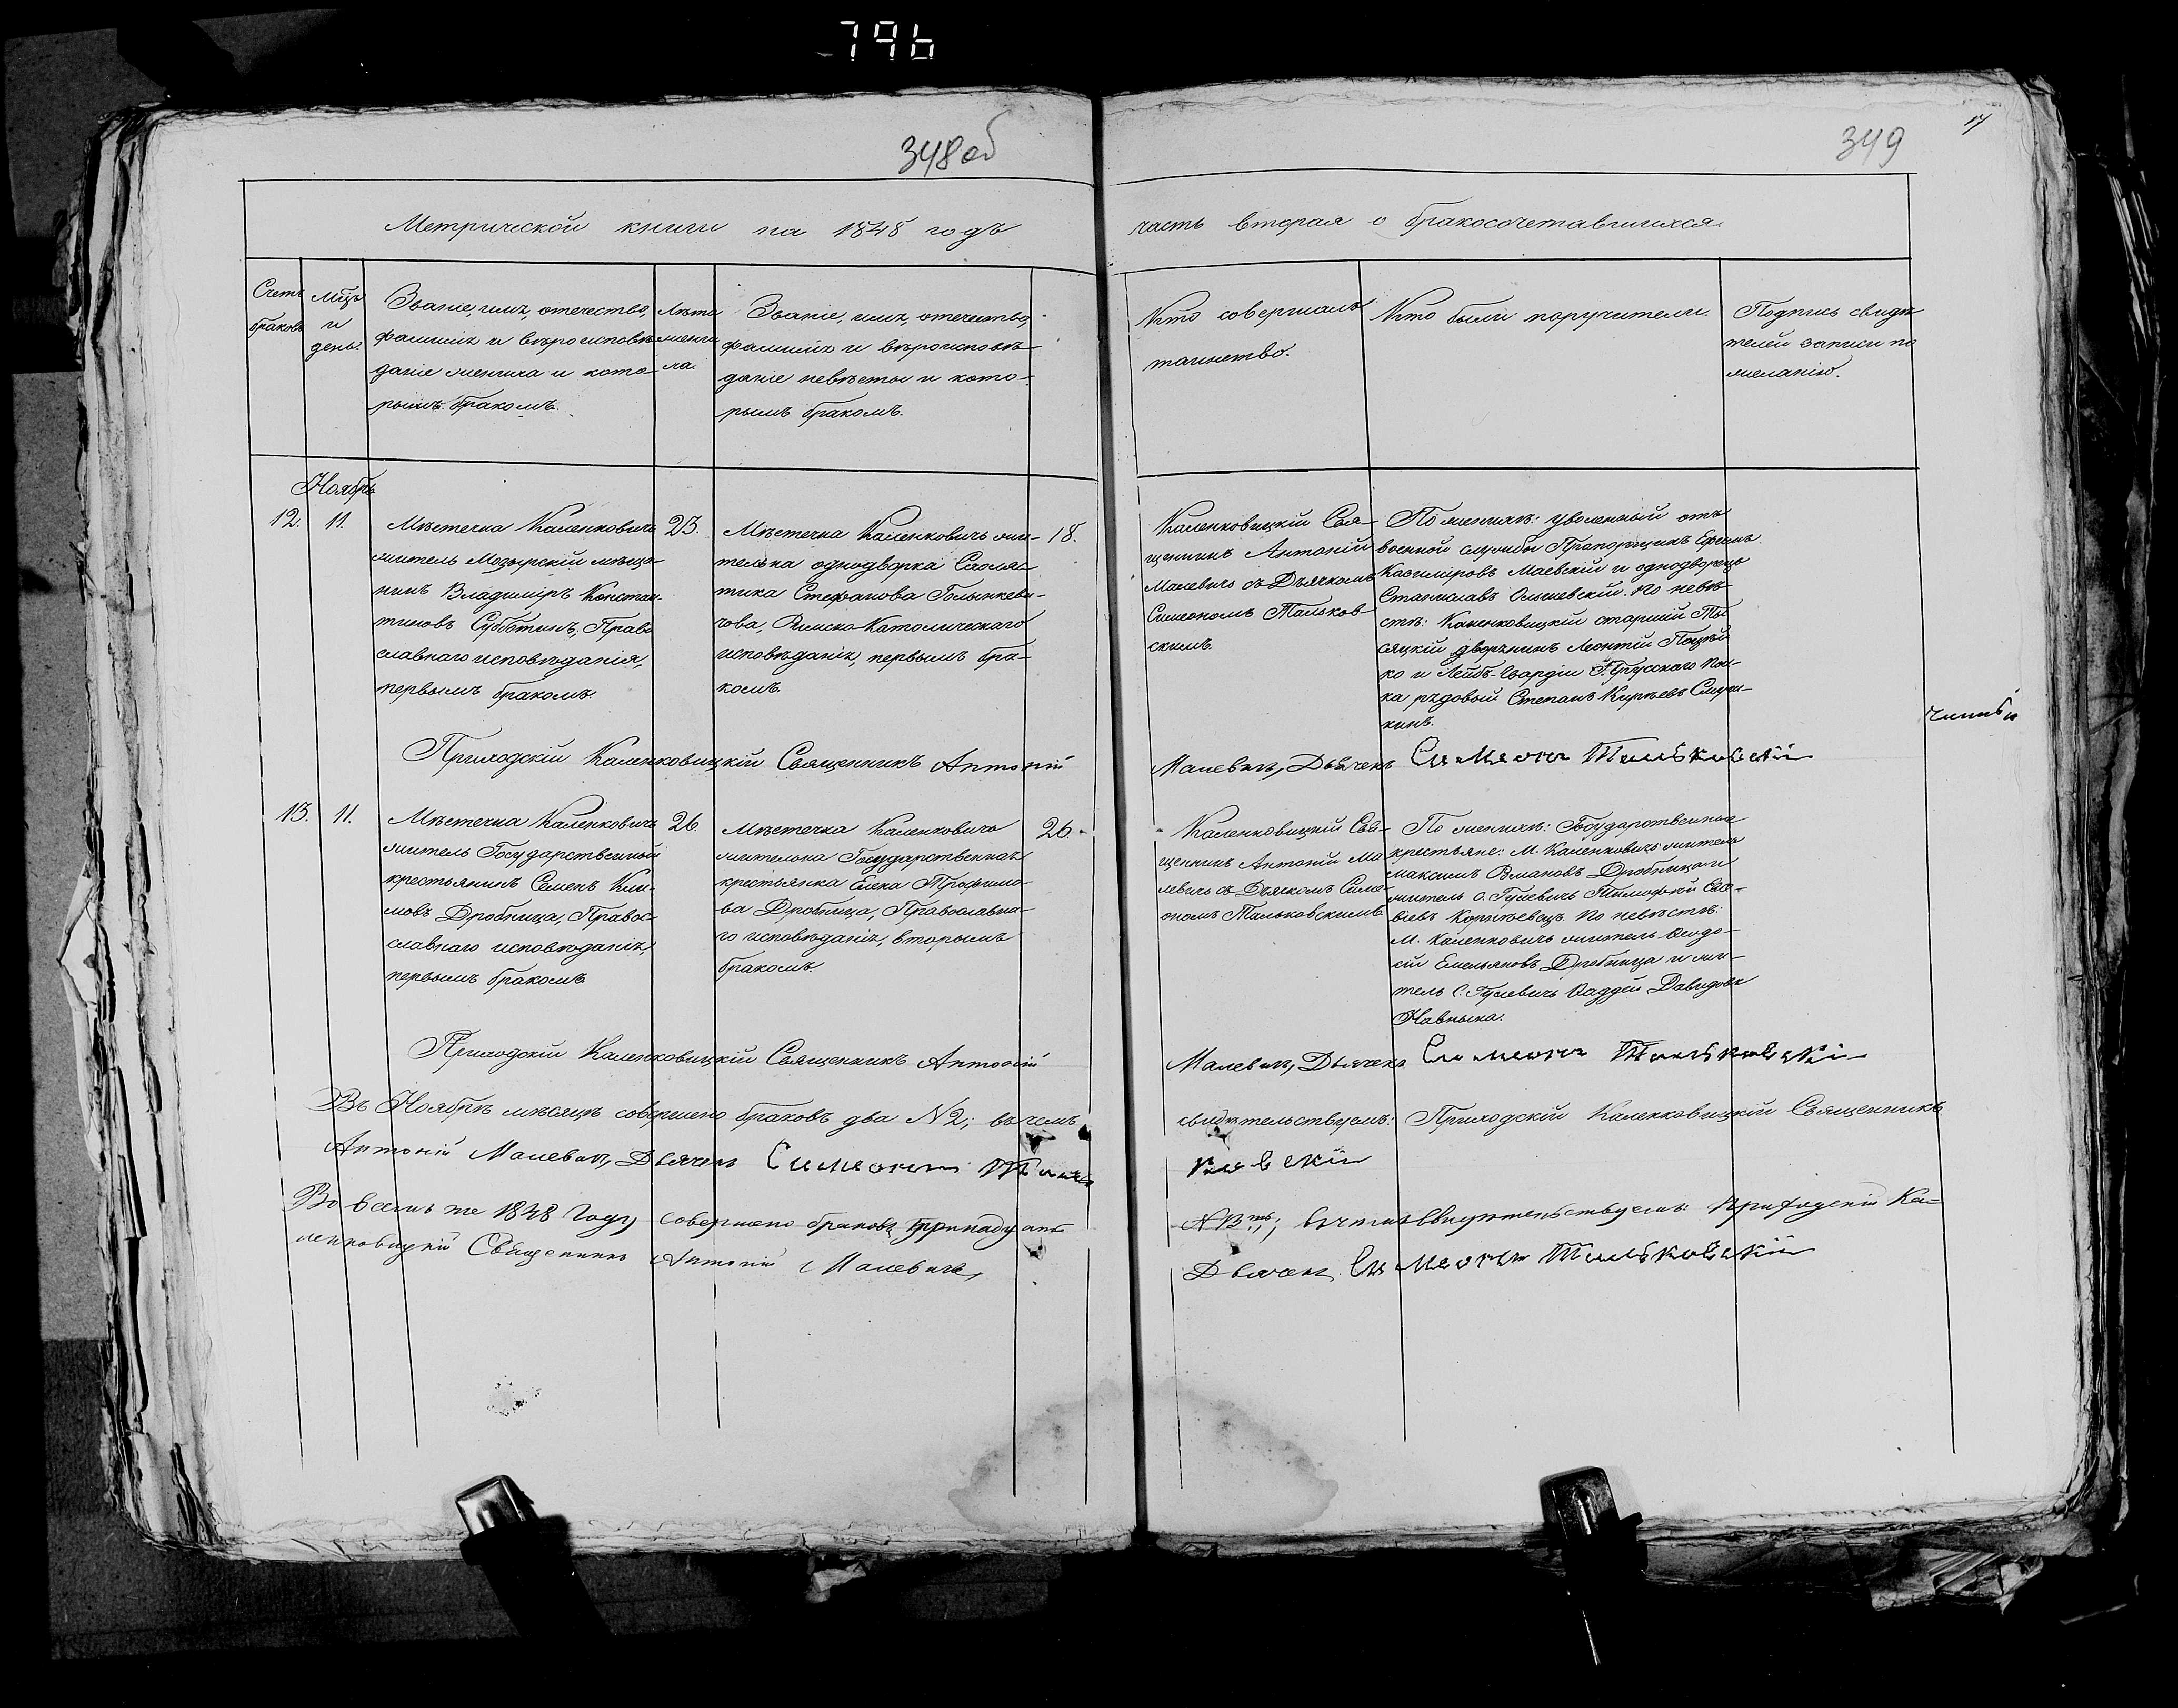 796
348 об
349
17
Метрической книги на 1848 годъ
часть вторая о бракосочетавшихся.
Счетъ браковъ
Мѣцъ и день.
Званіе, имя, отечество,
фамилія и вѣроисповѣ-
даніе жениха и кото-
рымъ бракомъ.
Лѣта жениха.
Званіе, имя, отечество,
фамилія и вѣроисповѣ-
даніе невѣсты и кото-
рымъ бракомъ.
Кто совершалъ
таинство.
Кто были поручители.
Подпись свидѣ-
телей записи по
желанію.
Ноябрь
12. 11.
Мѣстечка Каленковичъ
житель Мозырскій мѣща-
нинъ Владиміръ Констан-
тиновъ Субботинъ, Право
славнаго исповѣданія,
первымъ бракомъ.
23.
Мѣстечка Каленковичъ жи-
телька однодворка Схолас-
тика Стефанова Голынкеви-
чова, Римско-Католическаго
исповѣданія, первымъ бра-
комъ.
18.
Каленковицкій Свя-
щенникъ Антоній
Малевичъ съ Дьячкомъ
Симеономъ Тальков-
скимъ.
По женихѣ: уволенный отъ
военной службы Прапорщикъ Ефимъ
Казиміровъ Маевскій и однодворецъ
Станиславъ Ольшевскій. По невѣ-
стѣ: Каленковицкій старшій Ты-
сяцкій дворянинъ Леонтій
ко и Лейбъ-Гвардіи П. Прусскаго пол-
ка рядовый Степанъ Кирѣевъ
кинъ.
Приходскій Каленковицкій Священникъ Антоній
Малевичъ, Дьячекъ Симеонъ Тальковскій
13. 11.
Мѣстечка Каленковичъ
житель Государственный
крестьянинъ Семенъ Кли-
мовъ Дробница, Правос-
славнаго исповѣданія,
первымъ бракомъ
26.
Мѣстечка Каленковичъ
жителька Государственная
крестьянка Елена Трофимо-
ва Дробница, Православна-
го исповѣданія, вторымъ
бракомъ
26.
Каленковицкій Свя-
щенникъ Антоній Ма
левичъ съ Дьячкомъ Симе-
ономъ Тальковскимъ
По женихѣ: Государственные
крестьяне: М. Каленковичъ житель
Максимъ Романовъ Дробница и
житель с. Гулевичъ Тимофей Сав-
віевъ Корнѣевецъ. По невѣстѣ:
М. Каленковичъ житель Ѳеодо-
сій Емельяновъ Дробница и жи-
тель с. Гулевичъ Ѳаддей Давидовъ
Навныка.
Приходскій Каленковицкій Священникъ Антоній
Малевичъ, Дьячекъ Симеонъ Тальковскій
Въ Ноябрѣ мѣсяцѣ совершено браковъ два N2; въ чемъ
свидѣтельствуемъ: Приходскій Каленковицкій Священникъ
Антоній Малевичъ, Дьячекъ Симеонъ Таль
ковскій
Во всемъ же 1848 Году совершено браковъ тринадцать
N 13ть; въ чемъ свидѣтельствуемъ: Приходскій Ка-
ленковицкій Священникъ Антоній Малевичъ,
Дьячекъ Симеонъ Тальковскій